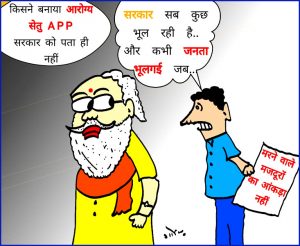 किसने बनाया आरोग्य
सेतु APP
सरकार को पता ही
नहीं
सरकार सब कुछ
भूल रही है..
और कभी जनता
भूलगई जब...
मरने वाले
मजदूरों
का आंकड़ा
नहीं